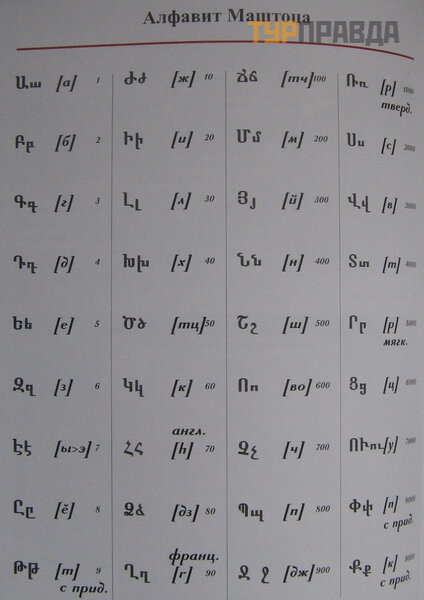 Алфавит Маштоца
ТУРПРАВДА
Աա [а] 1 Ժժ [ж] 10 Ճճ [тч] 100 Ռռ [р] 1000
тверд.
Բբ [б] 2 Իի [и] 20 Մմ [м] 200 Սս [с] 2000
Գգ [г] 3 Լլ [л] 30 Յյ [й] 300 Վվ [в] 3000
Դդ [д] 4 Խխ [х] 40 Նն [н] 400 Տտ [т] 4000
Եե [е] 5 Ծծ [тц] 50 Շշ [ш] 500 Րր [р] 5000
мягк.
Զզ [з] 6 Կկ [к] 60 Ոո [во] 600 Ցց [ц] 6000
англ.
Էէ [ы>э] 7 ՀՀ [h] 70 Չչ [ч] 700 ՈՒու [у] 7000
Ըը [ě] 8 Ձձ [дз] 80 Պպ [п] 800 Փփ [п] 8000
с прид.
франц.
Թթ [т] 9 Ղղ [г] 90 Ջ ջ [дж] 900 Քք [к] 9000
с прид. с прид.